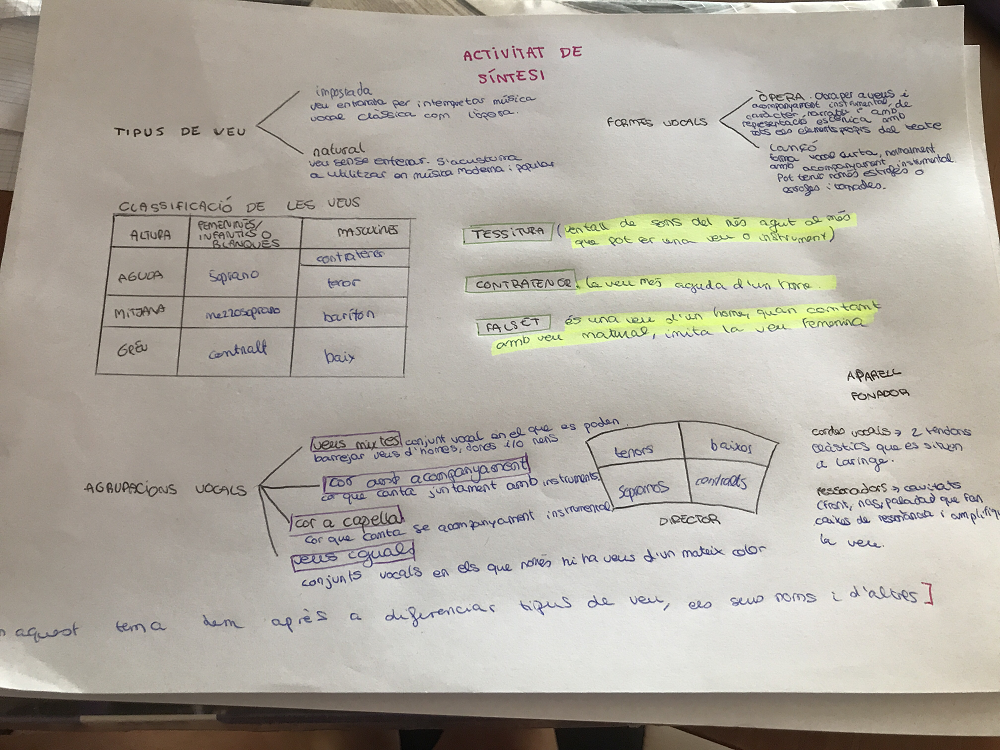 ACTIVITAT DE
SÍNTESI
TIPUS DE VEU
impostada
veu entrenada per interpretar música
vocal clàssica com l'òpera.
natural
veu sense entrenar. S'acustuma
a utilitzar en música moderna i popular
FORMES VOCALS
ÒPERA. Obra per a veus i
acompanyament instrumental, de
caràcter narratiu i amb
representació escènica amb
tots els elements propis del teatre
CANÇÓ
forma vocal curta, normalment
amb acompanyament instrumental.
Pot tenir només estrofes o
estrofes i tornades.
CLASSIFICACIÓ DE LES VEUS
ALTURA
FEMENINES/
INFANTILS O
BLANQUES
MASCULINES
AGUDA
Soprano
contratenor
tenor
MITJANA
mezzosoprano
baríton
GREU
contralt
baix
TESSITURA (ventall de sons del més agut al més
que pot fer una veu o instrument)
CONTRATENOR. la veu més aguda d'un home.
FALSET és una veu d'un home, quan cantant
amb veu natural, imita la veu femenina
AGRUPACIONS VOCALS
veus mixtes conjunt vocal en el que es poden
barrejar veus d'homes, dones i/o nens
cor amb acompanyament
cor que canta juntament amb instruments
cor a capella
cor que canta se acompanyament instrumental
veus iguals
conjunts vocals en els que només hi ha veus d'un mateix color
tenors
baixos
sopranos
contralts
DIRECTOR
APARELL
FONADOR
cordes vocals → 2 tendons
elàstics que es situen
a laringe.
ressonadors → cavitats
(front, nas, paladar que fan
caixes de resonància i amplifiq
la veu.
n aquest tema hem après a diferenciar tipus de veu, els seus noms i d'altres]